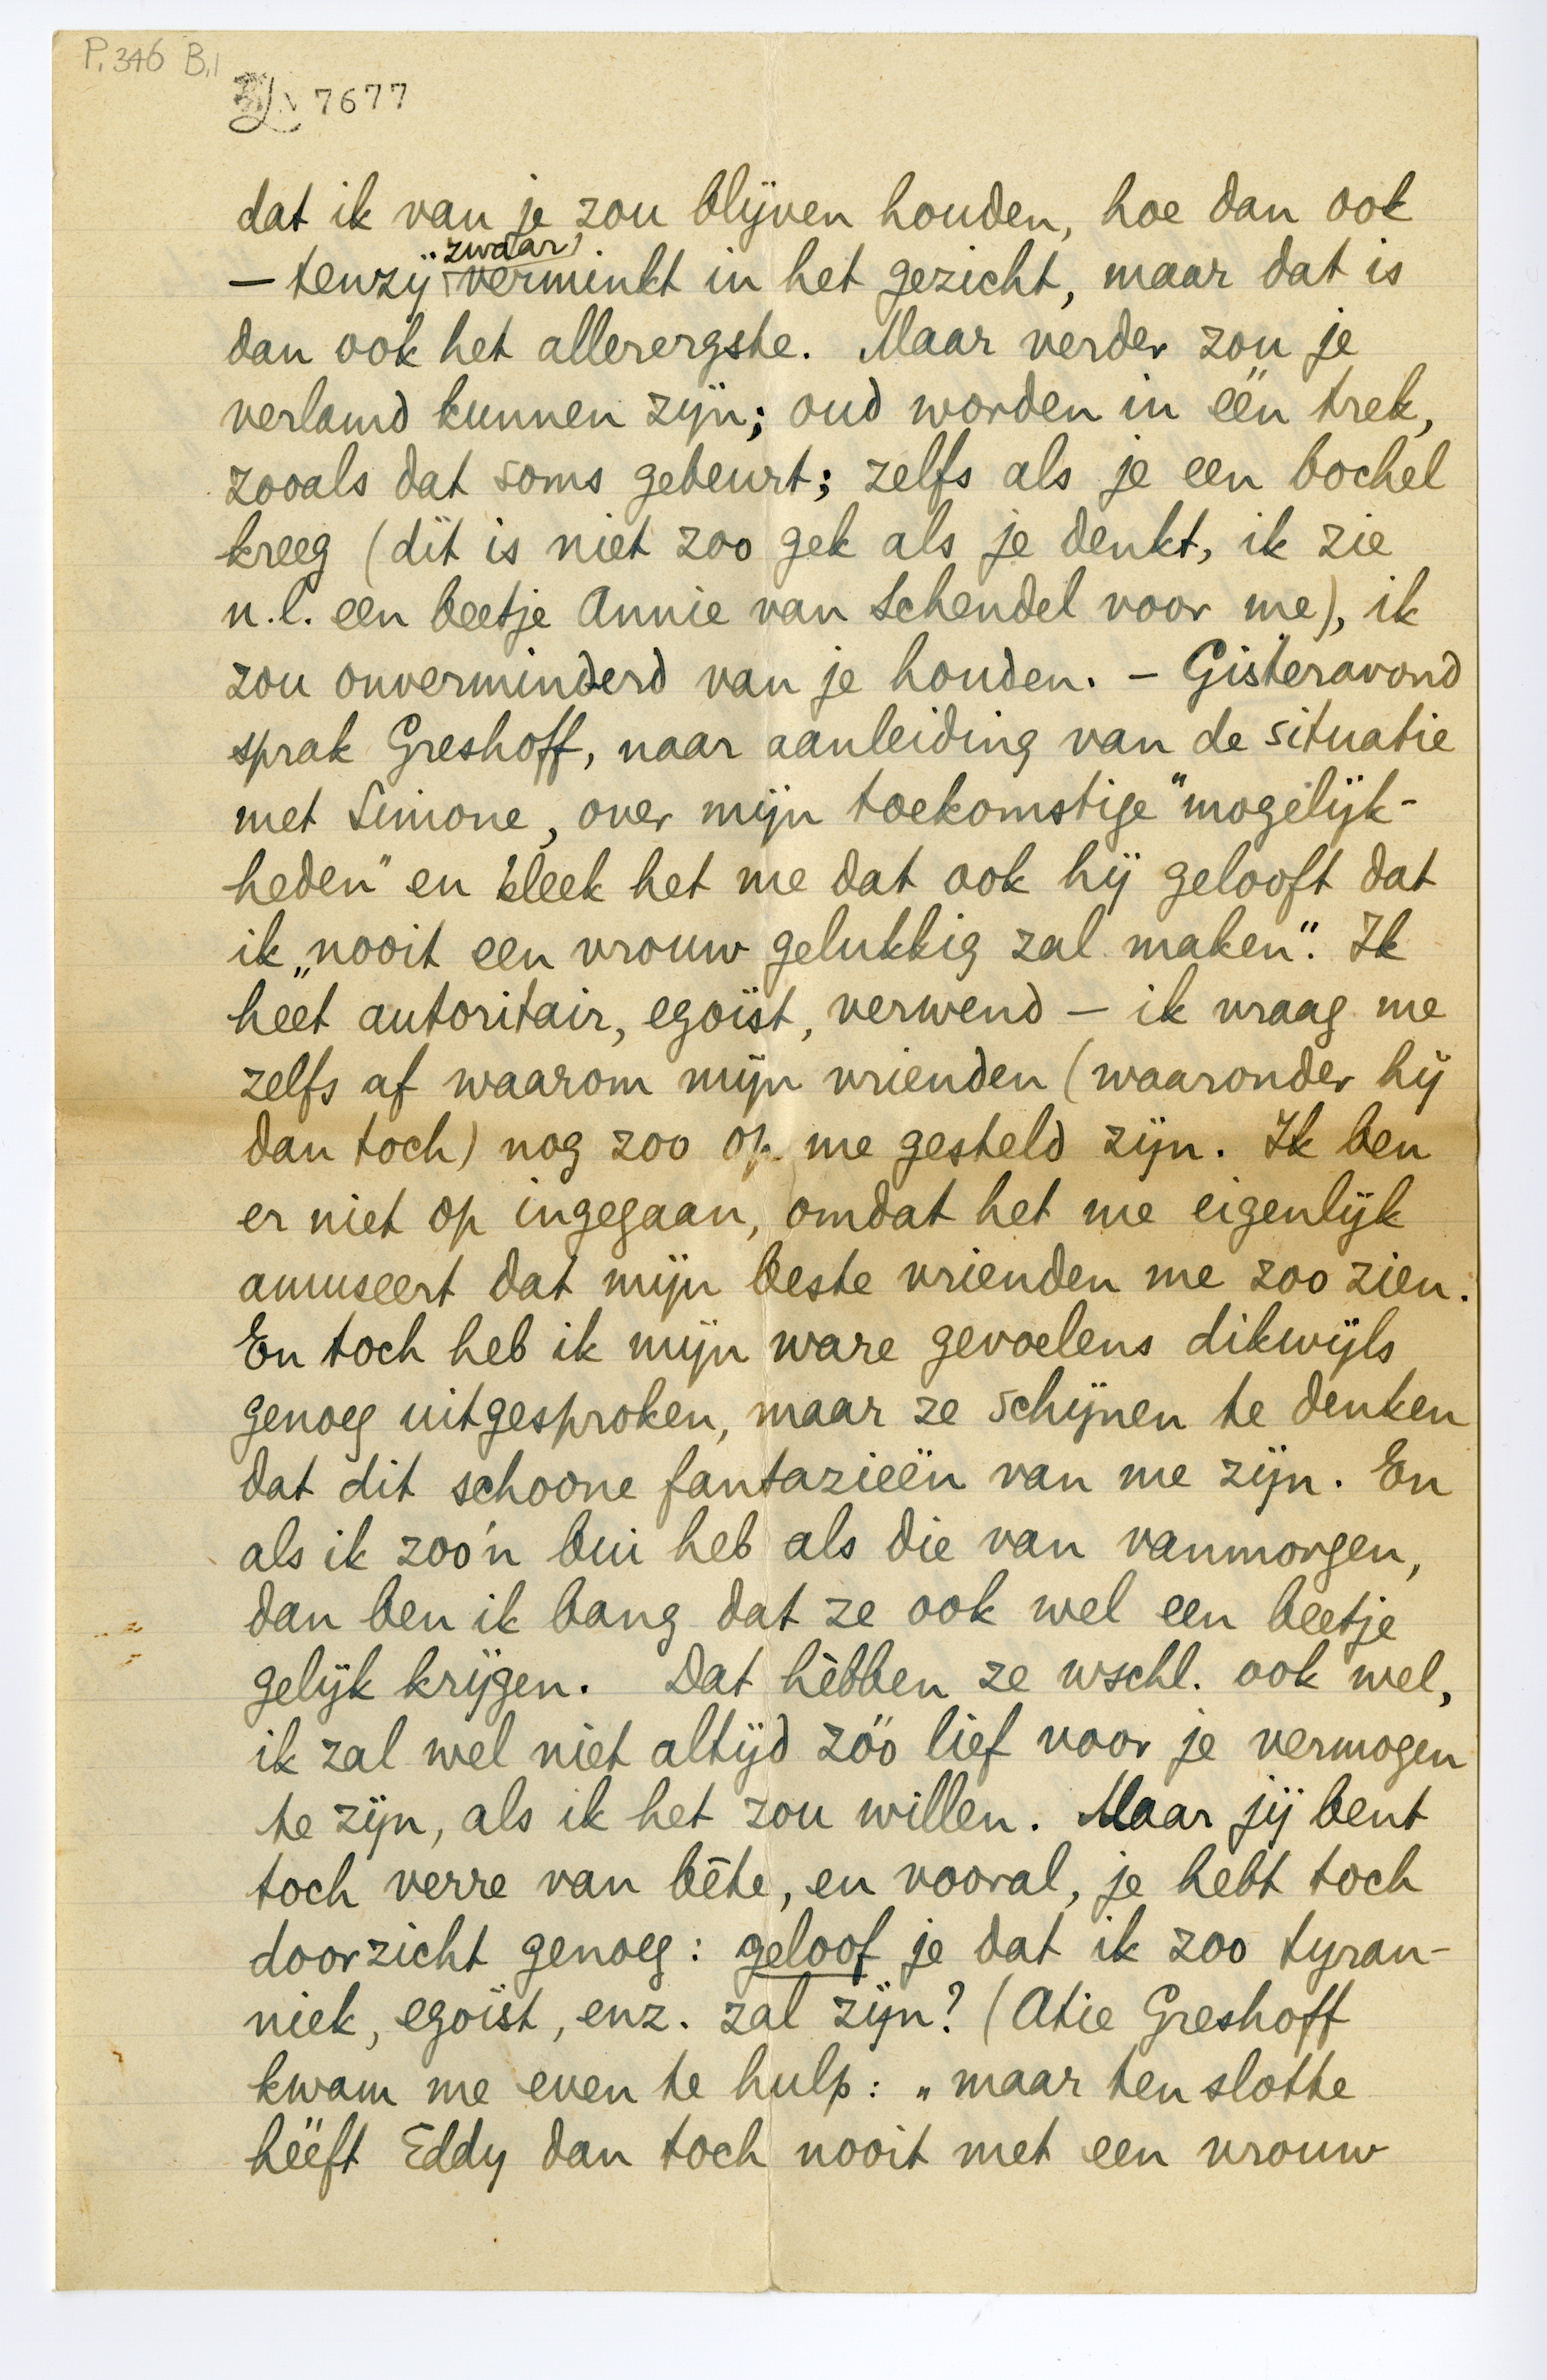 P.346 B,1
7677
dat ik van je zou blijven houden, hoe dan ook
— tenzij zwaar verminkt in het gezicht, maar dat is
dan ook het allerergste. Maar verder zou je
verlamd kunnen zijn; oud worden in één trek,
zooals dat soms gebeurt; zelfs als je een bochel
kreeg (dit is niet zoo gek als je denkt, ik zie
n.l. een beetje Annie van Schendel voor me), ik
zou onverminderd van je houden. – Gisteravond
sprak Greshoff, naar aanleiding van de situatie
met Simone, over mijn toekomstige "mogelijk-
heden" en bleek het me dat ook hij gelooft dat
ik „nooit een vrouw gelukkig zal maken". Ik
heet autoritair, egoïst, verwend – ik vraag me
zelfs af waarom mijn vrienden (waaronder hij
dan toch) nog zoo op me gesteld zijn. Ik ben
er niet op ingegaan, omdat het me eigenlijk
amuseert dat mijn beste vrienden me zoo zien.
En toch heb ik mijn ware gevoelens dikwijls
genoeg uitgesproken, maar ze schijnen te denken
dat dit schoone fantazieën van me zijn. En
als ik zoo'n bui heb als die van vanmorgen,
dan ben ik bang dat ze ook wel een beetje
gelijk krijgen. Dat hèbben ze wschl. ook wel,
ik zal wel niet altijd zóó lief voor je vermogen
te zijn, als ik het zou willen. Maar jij bent
toch verre van bête, en vooral, je hebt toch
doorzicht genoeg: geloof je dat ik zoo tyran-
niek, egoïst, enz. zal zijn? (Atie Greshoff
kwam me even te hulp: „maar ten slotte
hééft Eddy dan toch nooit met een vrouw